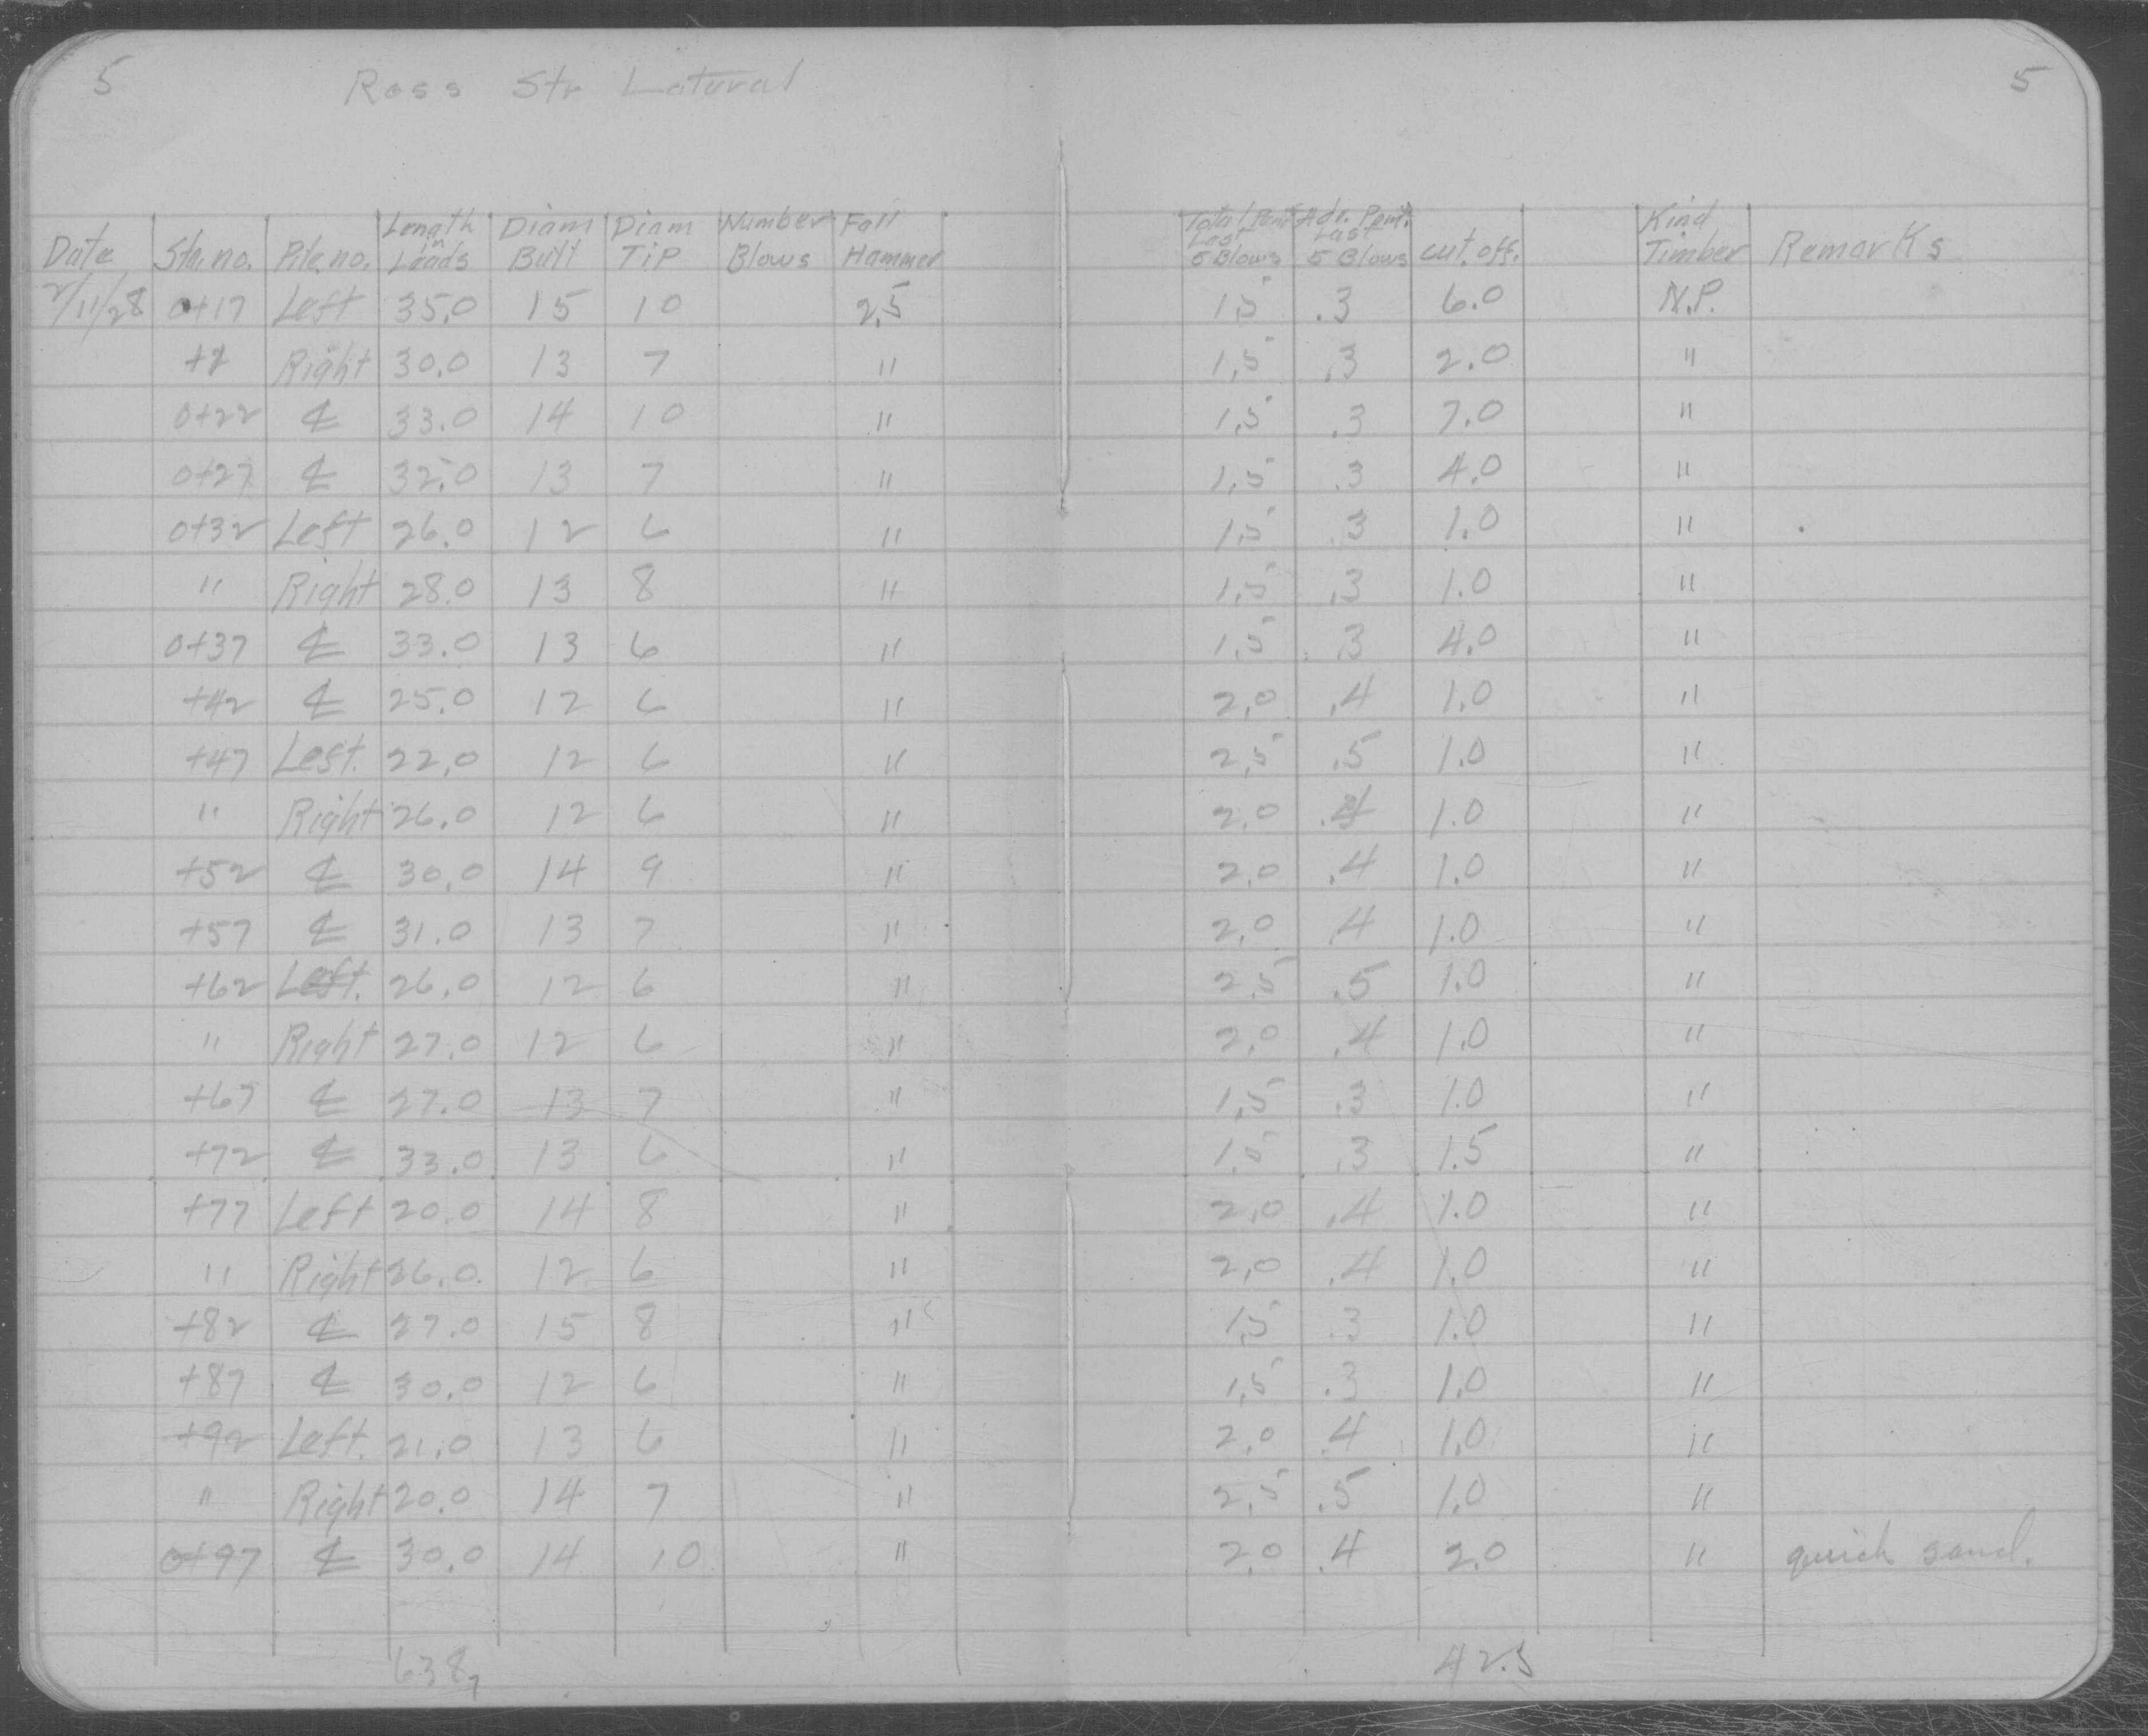 5 Ross Str Latural 5
Date Sta. no. Pile. no. Length in Leads Diam Butt Diam Tip Number Blows Fall Hammer Total Pent Last 5 Blows Adv. Pent. Last 5 Blows cut. off. Kind Timber Remarks
2/11/28 0+17 Left 35.0 15 10 2.5 1.5 .3 6.0 N.P.
Right 30.0 13 7 " 1.5 .3 2.0 "
0+22 ℄ 33.0 14 10 " 1.5 .3 7.0 "
0+27 ℄ 32.0 13 7 " 1.5 .3 4.0 "
0+32 Left 26.0 12 6 " 1.5 .3 1.0 "
" Right 28.0 13 8 " 1.5 .3 1.0 "
0+37 ℄ 33.0 13 6 " 1.5 .3 4.0 "
+42 ℄ 25.0 12 6 " 2.0 .4 1.0 "
+47 Left. 22.0 12 6 " 2.5 .5 1.0 "
" Right 26.0 12 6 " 2.0 .4 1.0 "
+52 ℄ 30.0 14 9 " 2.0 .4 1.0 "
+57 ℄ 31.0 13 7 " 2.0 .4 1.0 "
+62 Left. 26.0 12 6 " 2.5 .5 1.0 "
" Right 27.0 12 6 " 2.0 .4 1.0 "
+67 ℄ 27.0 13 7 " 1.5 .3 1.0 "
+72 ℄ 33.0 13 6 " 1.5 .3 1.5 "
+77 Left 20.0 14 8 " 2.0 .4 1.0 "
" Right 26.0 12 6 " 2.0 .4 1.0 "
+82 ℄ 27.0 15 8 " 1.5 .3 1.0 "
+87 ℄ 30.0 12 6 " 1.5 .3 1.0 "
+92 Left. 21.0 13 6 " 2.0 .4 1.0 "
" Right 20.0 14 7 " 2.5 .5 1.0 "
0+97 ℄ 30.0 14 10 " 2.0 .4 2.0 " quick sand.
638 42.5